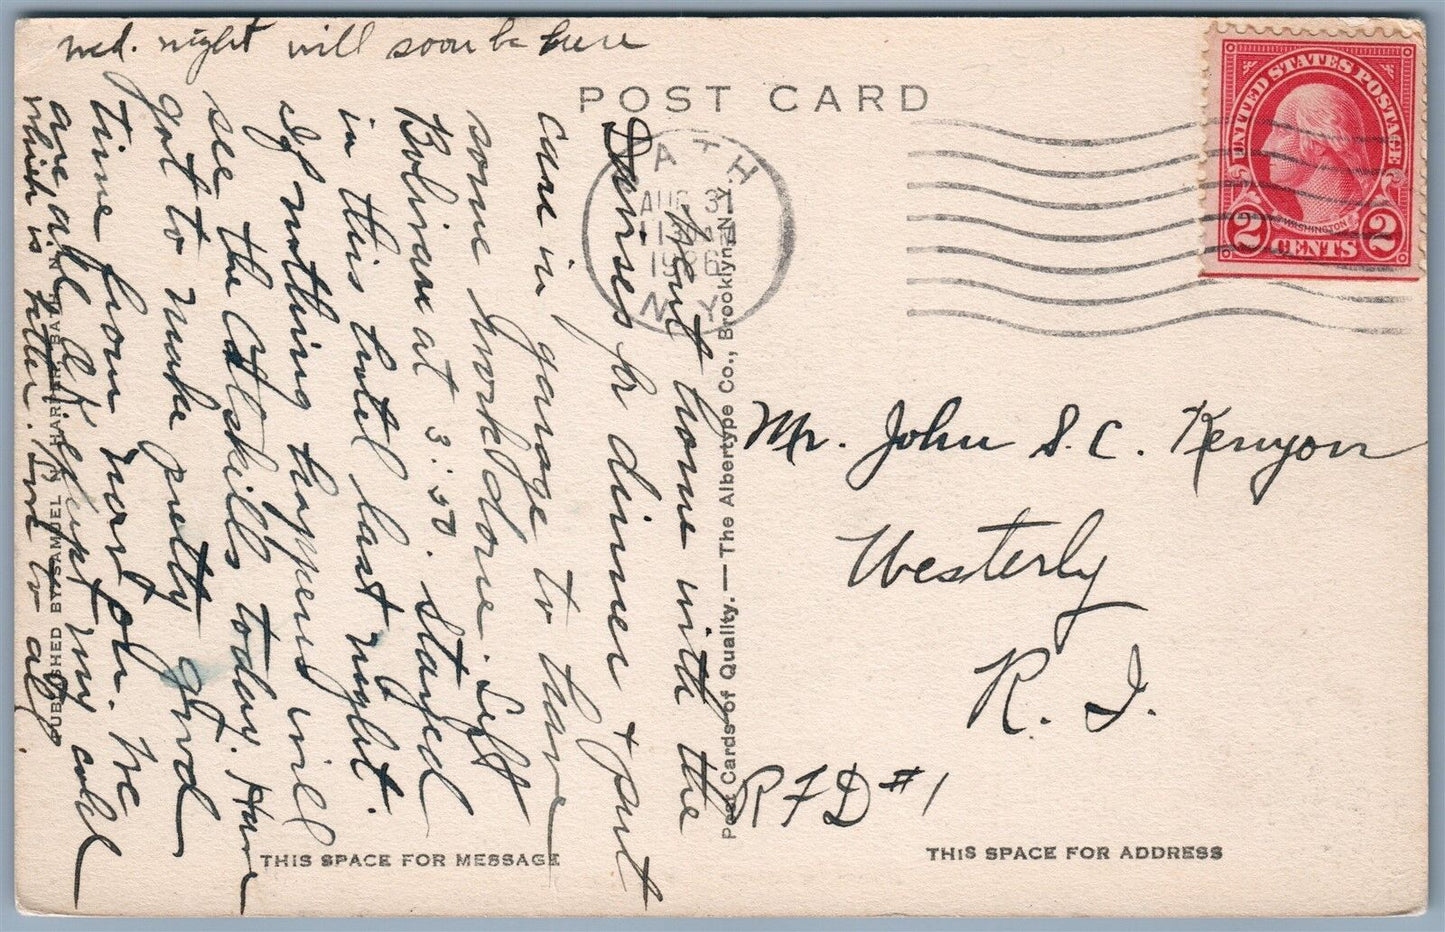 wed. night will soon be here
POST CARD
UNITED STATES POSTAGE
WASHINGTON
2 CENTS 2
BATH
AUG 31
1926
N.Y.
Went home with the
Davises for dinner + put
car in garage to have
some work done. Left
Bolivar at 3:50. Stayed
in this hotel last night.
If nothing happens will
see the Catskills today. Have
got to make pretty good
time from now on. We
are all O.K. except my cold
which is better. Love to all
PUBLISHED BY SAMUEL HARPER, BATH, N.Y.
Post Cards of Quality. — The Albertype Co., Brooklyn, N.Y.
Mr. John S. C. Kenyon
Westerly
R. I.
RFD #1
THIS SPACE FOR MESSAGE
THIS SPACE FOR ADDRESS